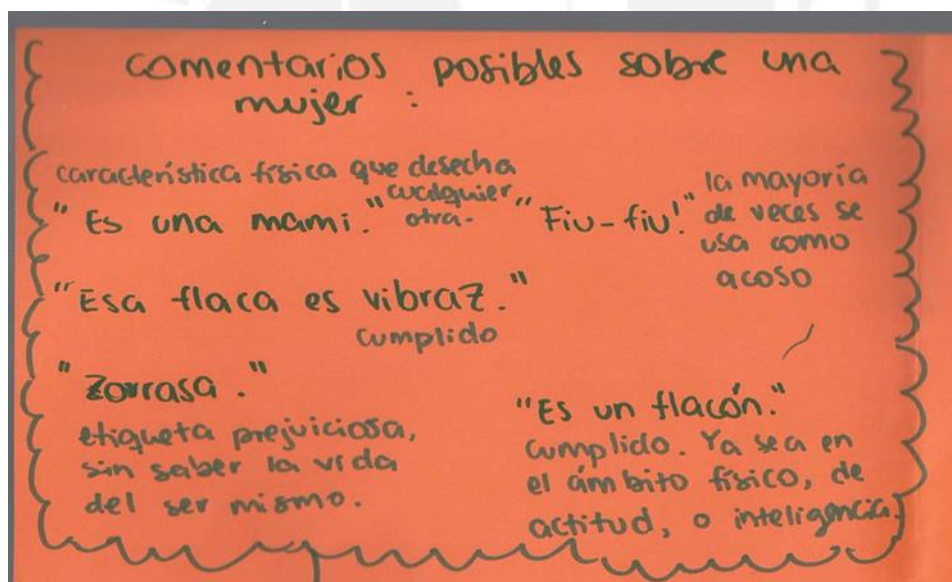 comentarios posibles sobre una
mujer :
característica física que desecha
cualquier
otra.
"Es una mami."
"Fiu-fiu!"
la mayoría
de veces se
usa como
acoso
"Esa flaca es vibraz."
cumplido
"Zorrasa."
etiqueta prejuiciosa,
sin saber la vida
del ser mismo.
"Es un flacón."
cumplido. Ya sea en
el ámbito físico, de
actitud, o inteligencia.